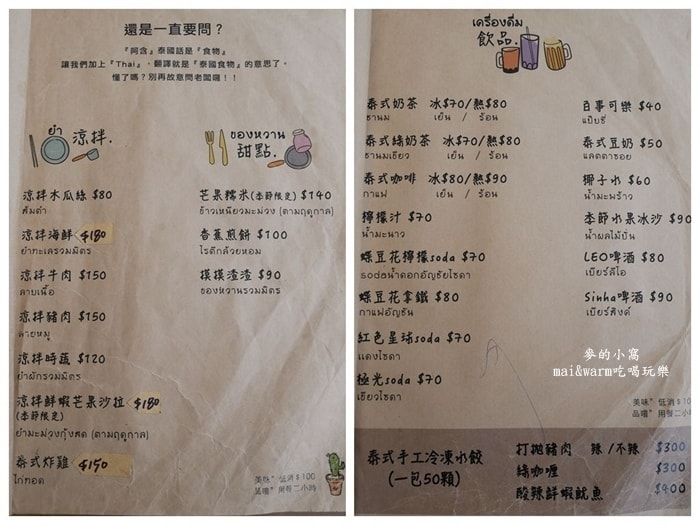 還是一直要問？
『阿含』泰國話是『食物』
讓我們加上『Thai』, 翻譯就是『泰國食物』的意思了。
懂了嗎？別再故意問老闆囉！！
ยำ 涼拌.
涼拌木瓜絲 $80
ส้มตำ
涼拌海鮮 $180
ยำทะเลรวมมิตร
涼拌牛肉 $150
ลาบเนื้อ
涼拌豬肉 $150
ลาบหมู
涼拌時蔬 $120
ยำผักรวมมิตร
涼拌鮮蝦芒果沙拉 $180
(季節限定)
ยำมะม่วงกุ้งสด (ตามฤดูกาล)
泰式炸雞 $150
ไก่ทอด
ของหวาน
甜點.
芒果糯米(季節限定) $140
ข้าวเหนียวมะม่วง (ตามฤดูกาล)
香蕉煎餅 $100
โรตีกล้วยหอม
摸摸渣渣 $90
ของหวานรวมมิตร
美味" 低消$100
品嚐" 用餐二小時
เครื่องดื่ม
飲品.
泰式奶茶 冰$70/熱$80
ชานม เย็น / ร้อน
泰式綠奶茶 冰$70/熱$80
ชานมเขียว เย็น / ร้อน
泰式咖啡 冰$80/熱$90
กาแฟ เย็น / ร้อน
檸檬汁 $70
น้ำมะนาว
蝶豆花檸檬soda $70
sodaน้ำดอกอัญชัยโซดา
蝶豆花拿鐵 $80
กาแฟอัญชัน
紅色星球soda $70
แดงโซดา
極光soda $70
เขียวโซดา
百事可樂 $40
แป๊บซี่
泰式豆奶 $50
แลคตาซอย
椰子水 $60
น้ำมะพร้าว
季節水果冰沙 $90
น้ำผลไม้ปั่น
LEO啤酒 $80
เบียร์ลีโอ
Sinha啤酒 $90
เบียร์สิงค์
麥的小窩
mai&warm吃喝玩樂
美味" 低消$10
品嚐" 用餐二小
泰式手工冷凍水餃
(一包50顆)
打拋豬肉 辣/不辣 $300
綠咖喱 $300
酸辣鮮蝦魷魚 $400